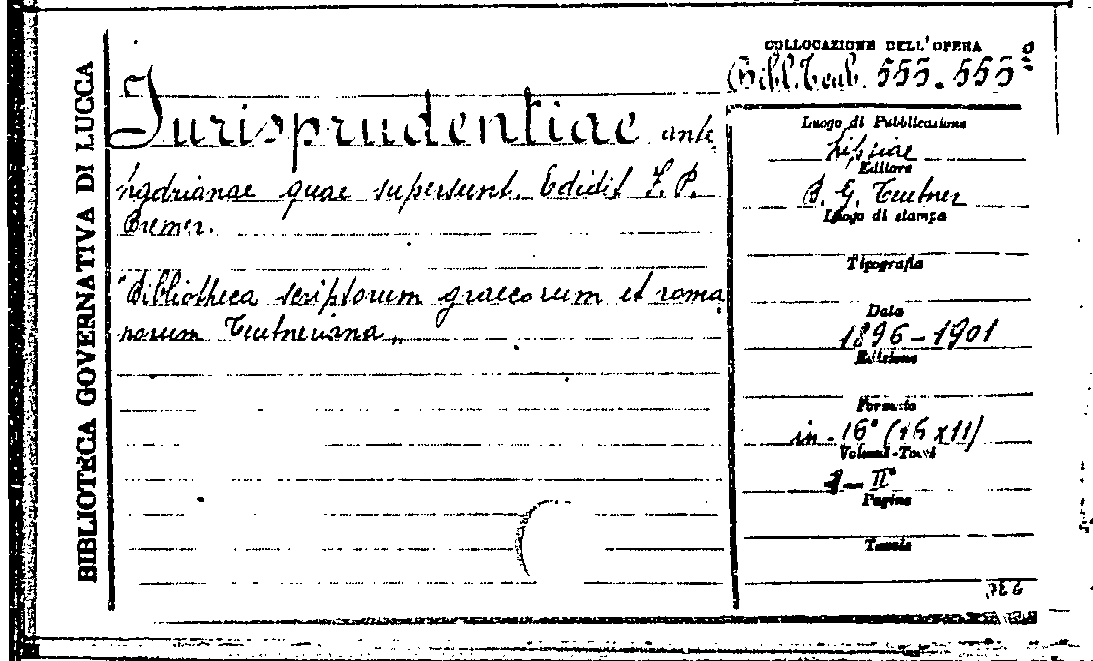 BIBLIOTECA GOVERNATIVA DI LUCCA
COLLOCAZIONE DELL'OPERA
Bibl. Teub. 555.555ª
Jurisprudentiae ante
hadrianae quae supersunt. Edidit F. P.
Bremer.
"Bibliotheca scriptorum graecorum et roma
norum Teubneriana„
Luogo di Pubblicazione
Lipsiae
Editore
B. G. Teubner
Luogo di stampa
Tipografia
Data
1896-1901
Edizione
Formato
in-16° (16x11)
Volumi-Tomi
1-II°
Pagine
Tavole